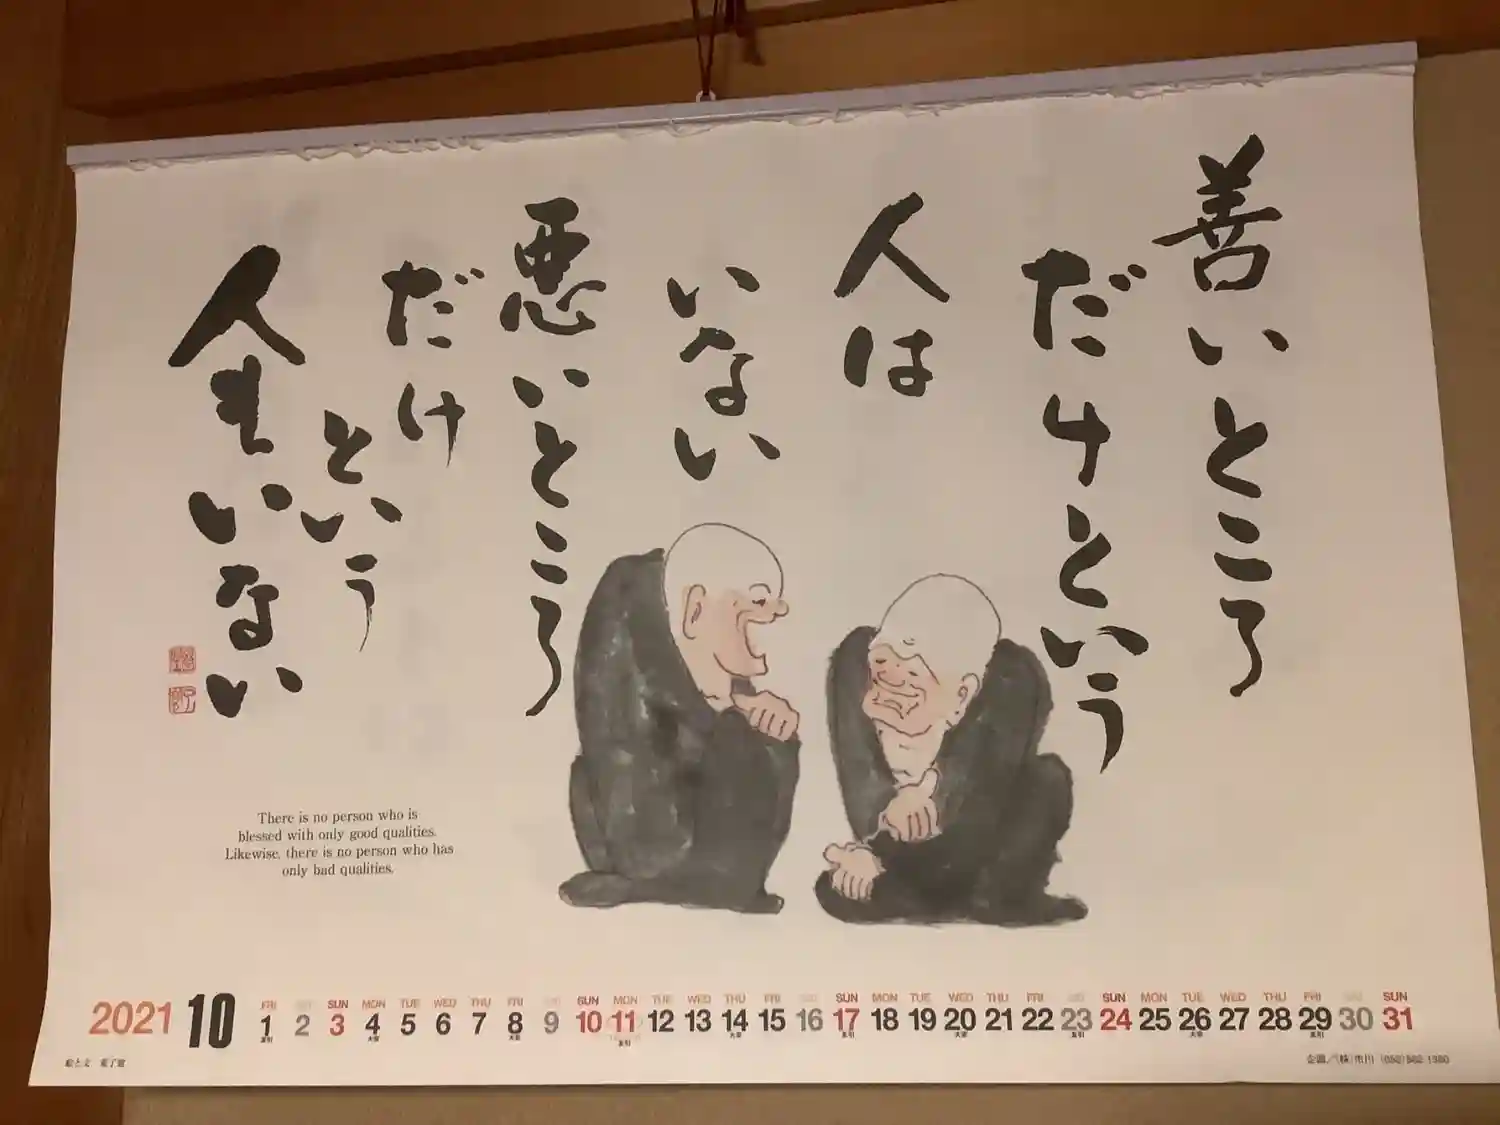 善いところ
だけという
人は
いない
悪いところ
だけ
という
人もいない
There is no person who is
blessed with only good qualities.
Likewise, there is no person who has
only bad qualities.
2021 10
FRI SAT SUN MON TUE WED THU FRI SAT SUN MON TUE WED THU FRI SAT SUN MON TUE WED THU FRI SAT SUN MON TUE WED THU FRI SAT SUN
1 2 3 4 5 6 7 8 9 10 11 12 13 14 15 16 17 18 19 20 21 22 23 24 25 26 27 28 29 30 31
友引 大安 大安 友引 大安 友引 大安 友引 大安 友引
絵と文
企画／(株)市川 (052)